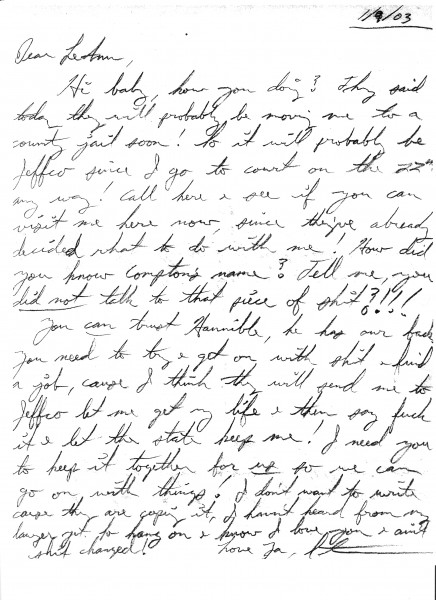 1/9/03
Dear LeAnn,
Hi baby, how you doing? They said
today they will probably be moving me to a
county jail soon! So it will probably be
Jeffco since I go to court on the 22nd
any way! Call here & see if you can
visit me here now, since they've already
decided what to do with me! How did
you know Comptons name? Tell me, you
did not talk to that piece of shit?!!!
You can trust Hannible, he has our back
you need to try & get on with shit & find
a job, cause I think they will send me to
Jeffco let me get my life & then say fuck
it & let the state keep me! I need you
to keep it together for us so we can
go on, with things! I don't want to write
cause they are copying it, I havn't heard from my
lawyer yet. So hang on & know I love you & ain't
shit changed! Love Ya,